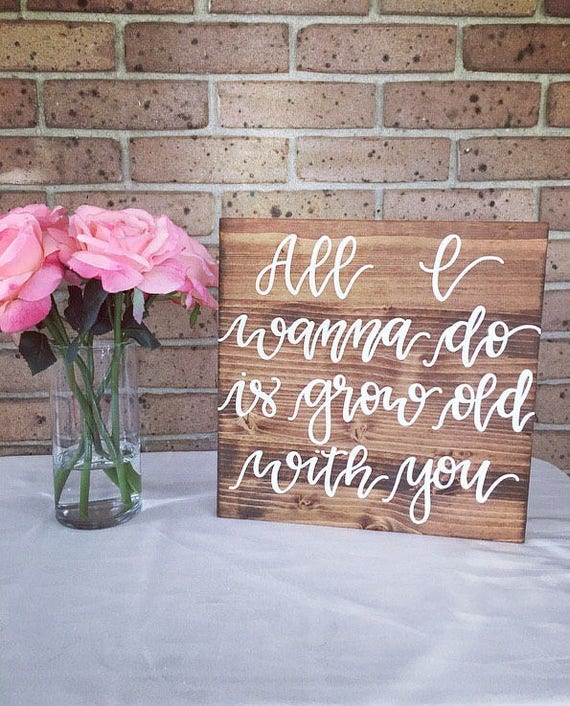 All I
wanna do
is grow old
with you